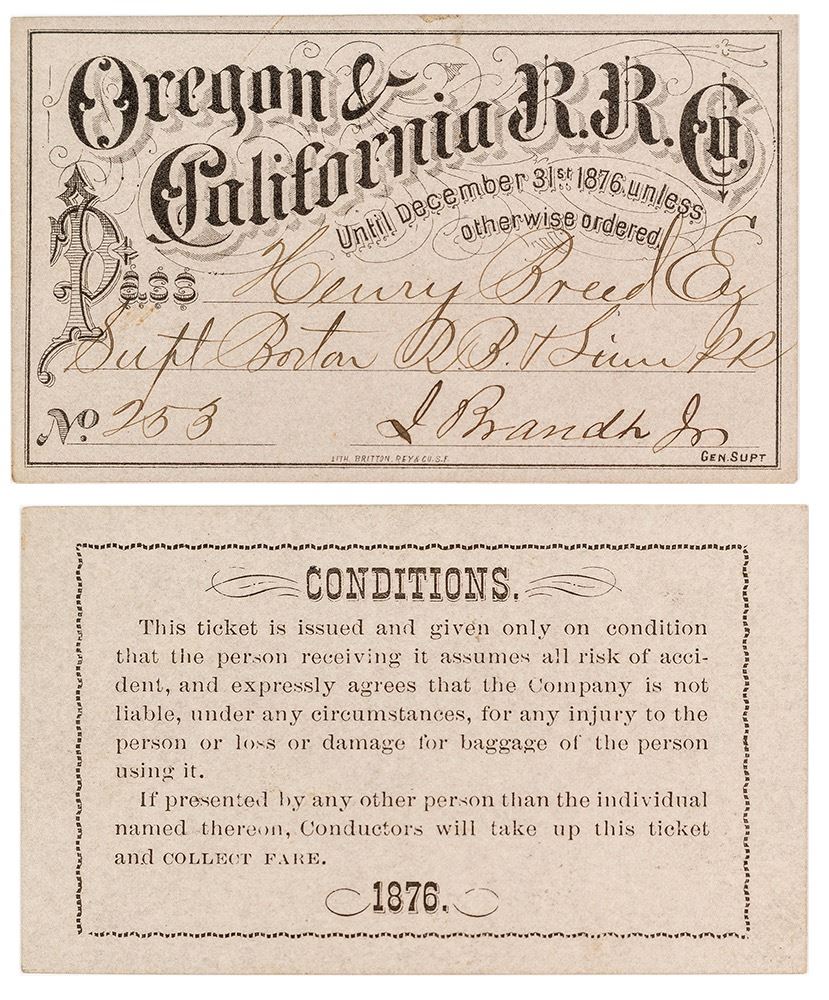 Oregon &
California R.R. Co.
Until December 31st 1876. unless
otherwise ordered.
Pass Henry Breed Esq
Supt Boston R.B. & Linn RR
No. 253 J Brandt Jr
LITH. BRITTON, REY & CO. S.F. GEN. SUPT
CONDITIONS.
This ticket is issued and given only on condition
that the person receiving it assumes all risk of acci-
dent, and expressly agrees that the Company is not
liable, under any circumstances, for any injury to the
person or loss or damage for baggage of the person
using it.
If presented by any other person than the individual
named thereon, Conductors will take up this ticket
and COLLECT FARE.
1876.